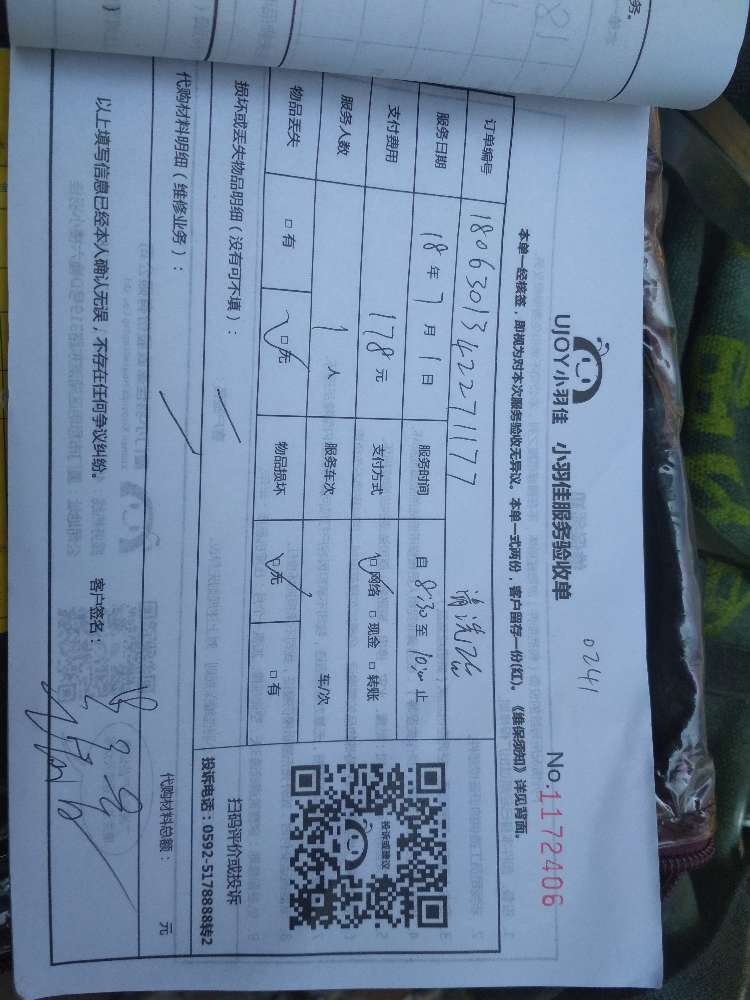 UJOY小羽佳 小羽佳服务验收单
0241
No:1172406
本单一经核签，即视为对本次服务验收无异议。本单一式两份，客户留存一份(红)。《维保须知》详见背面。
订单编号 18063013422271177
服务日期 18年7月1日 服务时间 自8:30至10:00止
支付费用 178元 支付方式 □网络 □现金 □转账
服务人数 1人 服务车次 车/次
物品丢失 □有 □无 物品损坏 □无 □有
投诉或建议
扫码评价或投诉
投诉电话：0592-5178888转2
损坏或丢失物品明细（没有可不填）：
代购材料明细（维修业务）：
代购材料总额： 元
以上填写信息已经本人确认无误，不存在任何争议纠纷。 客户签名：